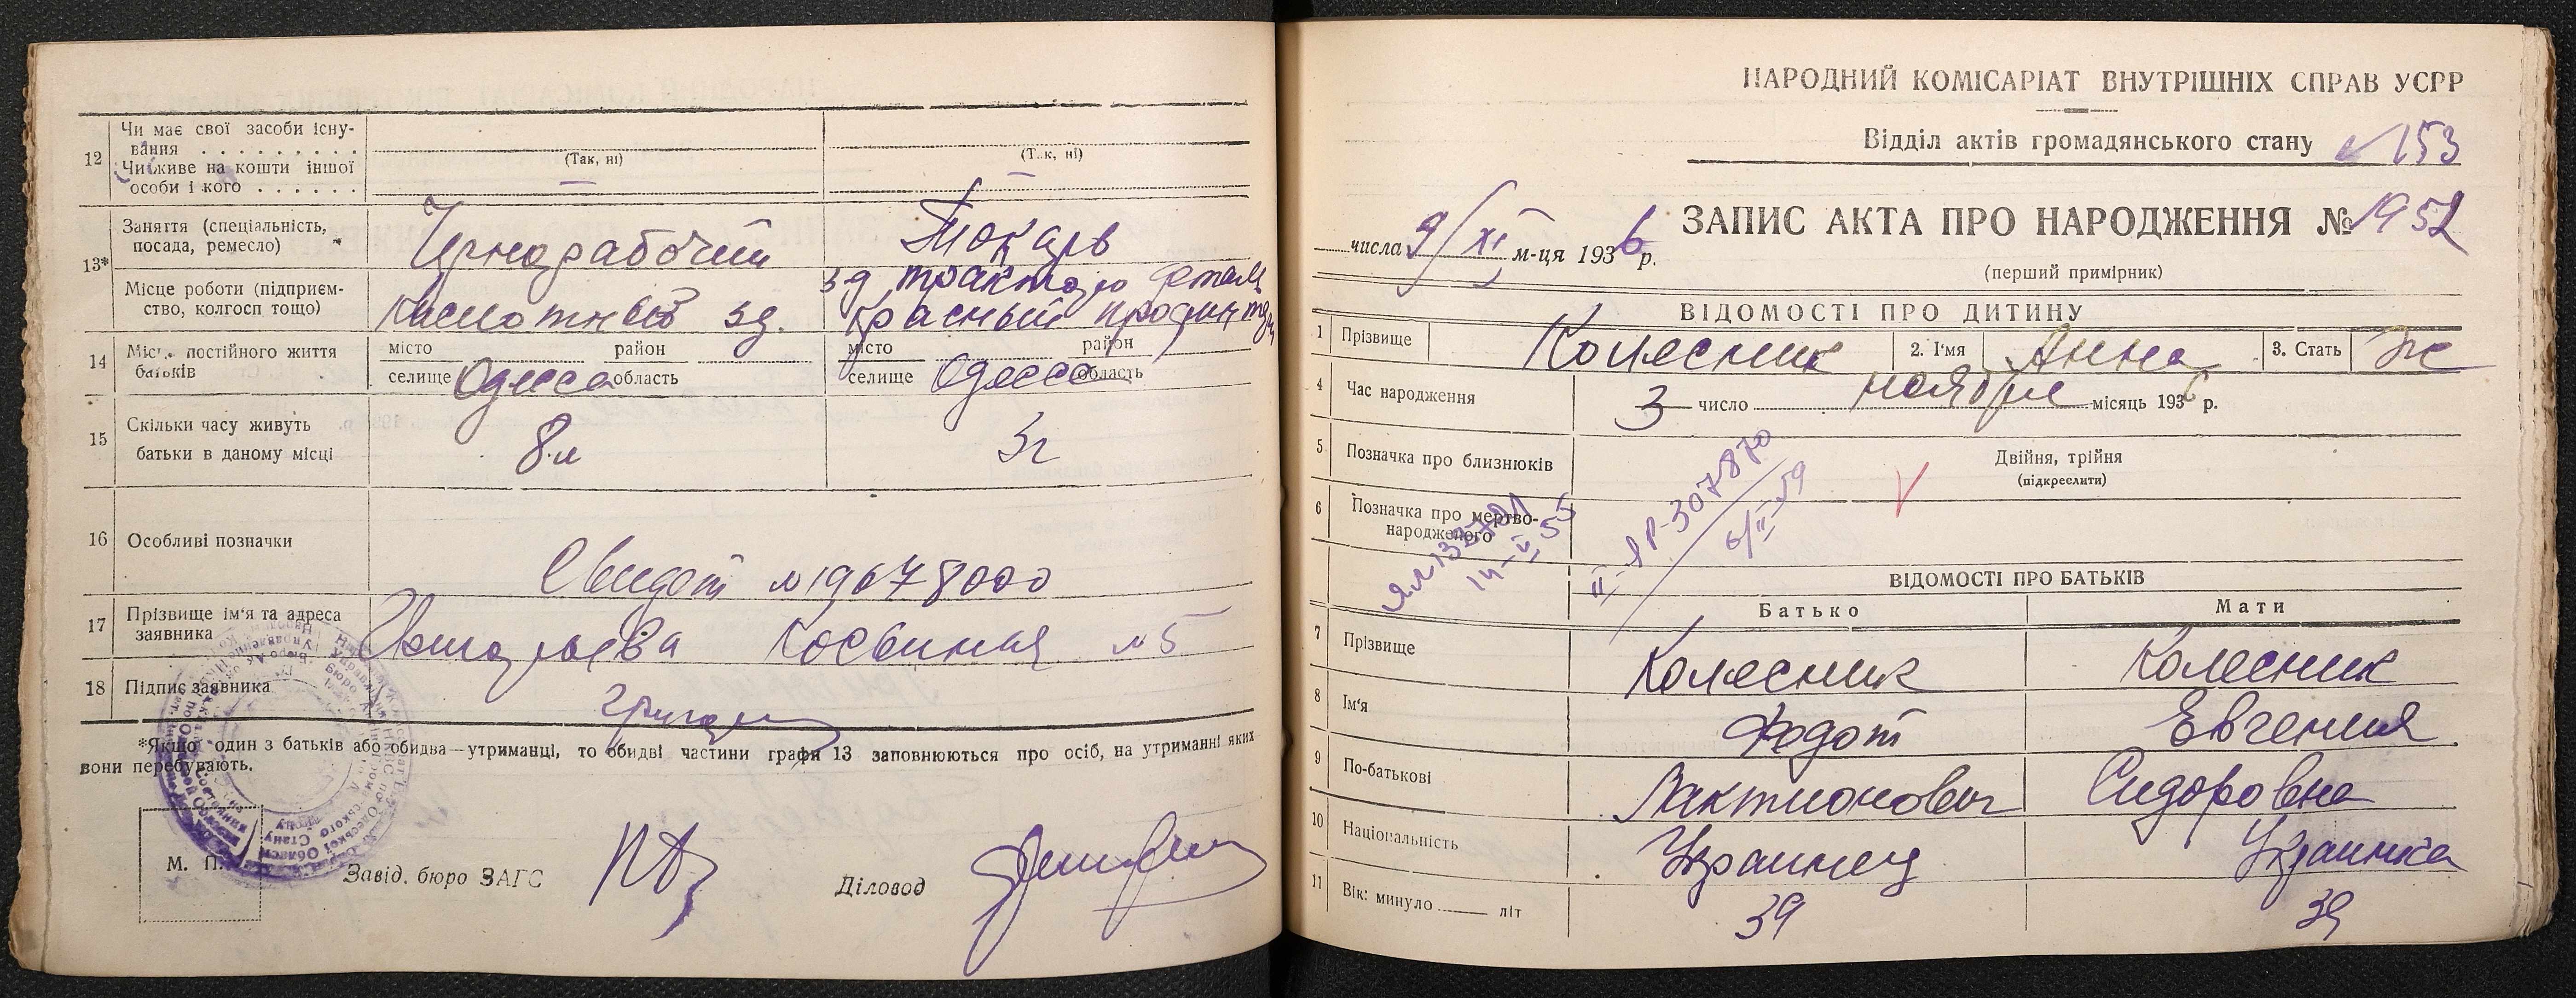 12 Чи має свої засоби існування . . . . . . . . .
(Так, ні)
(Так, ні)
Чи живе на кошти іншої особи і кого . . . . . .
—
—
13* Заняття (спеціальність, посада, ремесло)
Чернорабочий
Токарь
Місце роботи (підприємство, колгосп тощо)
Кислотный зд.
зд трактора детали
Красный
14 Місце постійного життя батьків
місто район
селище Одесса область
місто район
селище Одесса область
15 Скільки часу живуть батьки в даному місці
8 л
3 г
16 Особливі позначки
Свидет №19678000
17 Прізвище ім'я та адреса заявника
№5
18 Підпис заявника
*Якщо один з батьків або обидва—утриманці, то обидві частини графи 13 заповнюються про осіб, на утриманні яких
вони перебувають.
М. П.
Завід. бюро ЗАГС
Діловод
НАРОДНИЙ КОМІСАРІАТ ВНУТРІШНІХ СПРАВ УСРР
Відділ актів громадянського стану
153
ЗАПИС АКТА ПРО НАРОДЖЕННЯ № 1952
числа 9/XI м-ця 1936 р.
(перший примірник)
ВІДОМОСТІ ПРО ДИТИНУ
1 Прізвище Колесник 2. Ім'я Анна 3. Стать ж
4 Час народження 3 число ноября місяць 1936 р.
5 Позначка про близнюків
Двійня, трійня
(підкреслити)
6 Позначка про мертвонародженого
14-V-55
II-ЯР-307870
6/II-59
ВІДОМОСТІ ПРО БАТЬКІВ
Батько Мати
7 Прізвище Колесник Колесник
8 Ім'я Федот Евгения
9 По-батькові Лактионович Сидоровна
10 Національність Украинец Украинка
11 Вік: минуло ____ літ 39 39